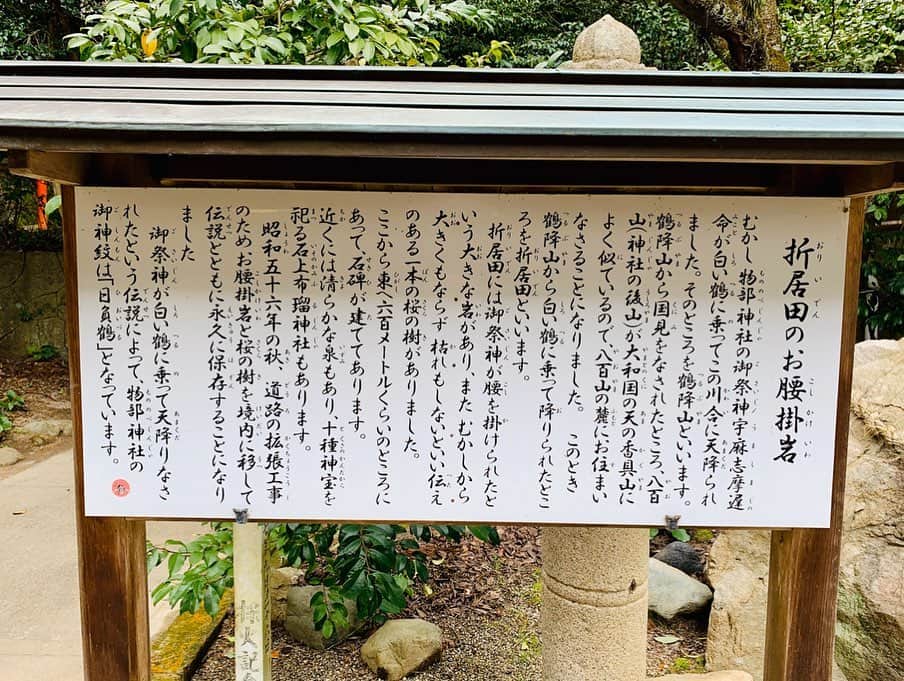 折居田のお腰掛岩
むかし物部神社の御祭神宇麻志摩遅
命が白い鶴に乗ってこの川合に天降られ
ました。そのところを鶴降山といいます。
鶴降山から国見をなされたところ、八百
山(神社の後山)が大和国の天の香具山に
よく似ているので、八百山の麓にお住まい
なさることになりました。このとき
鶴降山から白い鶴に乗って降りられたとこ
ろを折居田といいます。
折居田には御祭神が腰を掛けられたと
いう大きな岩があり、また、むかしから
大きくもならず枯れもしないとい伝え
のある一本の桜の樹がありました。
ここから東へ六百メートルくらいのところに
あって、石碑が建ててあります。
近くには清らかな泉もあり、十種神宝を
祀る石上布瑠神社もあります。
昭和五十六年の秋、道路の拡張工事
のためお腰掛岩と桜の樹を境内に移して
伝説とともに永久に保存することになり
ました
御祭神が白い鶴に乗って天降りなさ
れたという伝説によって、物部神社の
御神紋は「日負鶴」となっています。